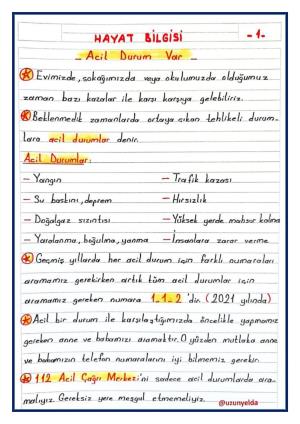 HAYAT BİLGİSİ -1-
Acil Durum Var
Evimizde, sokağımızda veya okulumuzda olduğumuz
zaman bazı kazalar ile karşı karşıya gelebiliriz.
Beklenmedik zamanlarda ortaya çıkan tehlikeli durum-
lara acil durumlar denir.
Acil Durumlar:
- Yangın - Trafik kazası
- Su baskını, deprem - Hırsızlık
- Doğalgaz sızıntısı - Yüksek yerde mahsur kalma
- Yaralanma, boğulma, yanma - İnsanlara zarar verme
Geçmiş yıllarda her acil durum için farklı numaraları
aramamız gerekirken artık tüm acil durumlar için
aramamız gereken numara 1-1-2 'dir. (2021 yılında)
Acil bir durum ile karşılaştığımızda öncelikle yapmamız
gereken anne ve babamızı aramaktır. O yüzden mutlaka anne
ve babamızın telefon numaralarını iyi bilmemiz gerekir.
112 Acil Çağrı Merkezi'ni sadece acil durumlarda ara-
malıyız. Gereksiz yere meşgul etmemeliyiz.
@uzunyelda